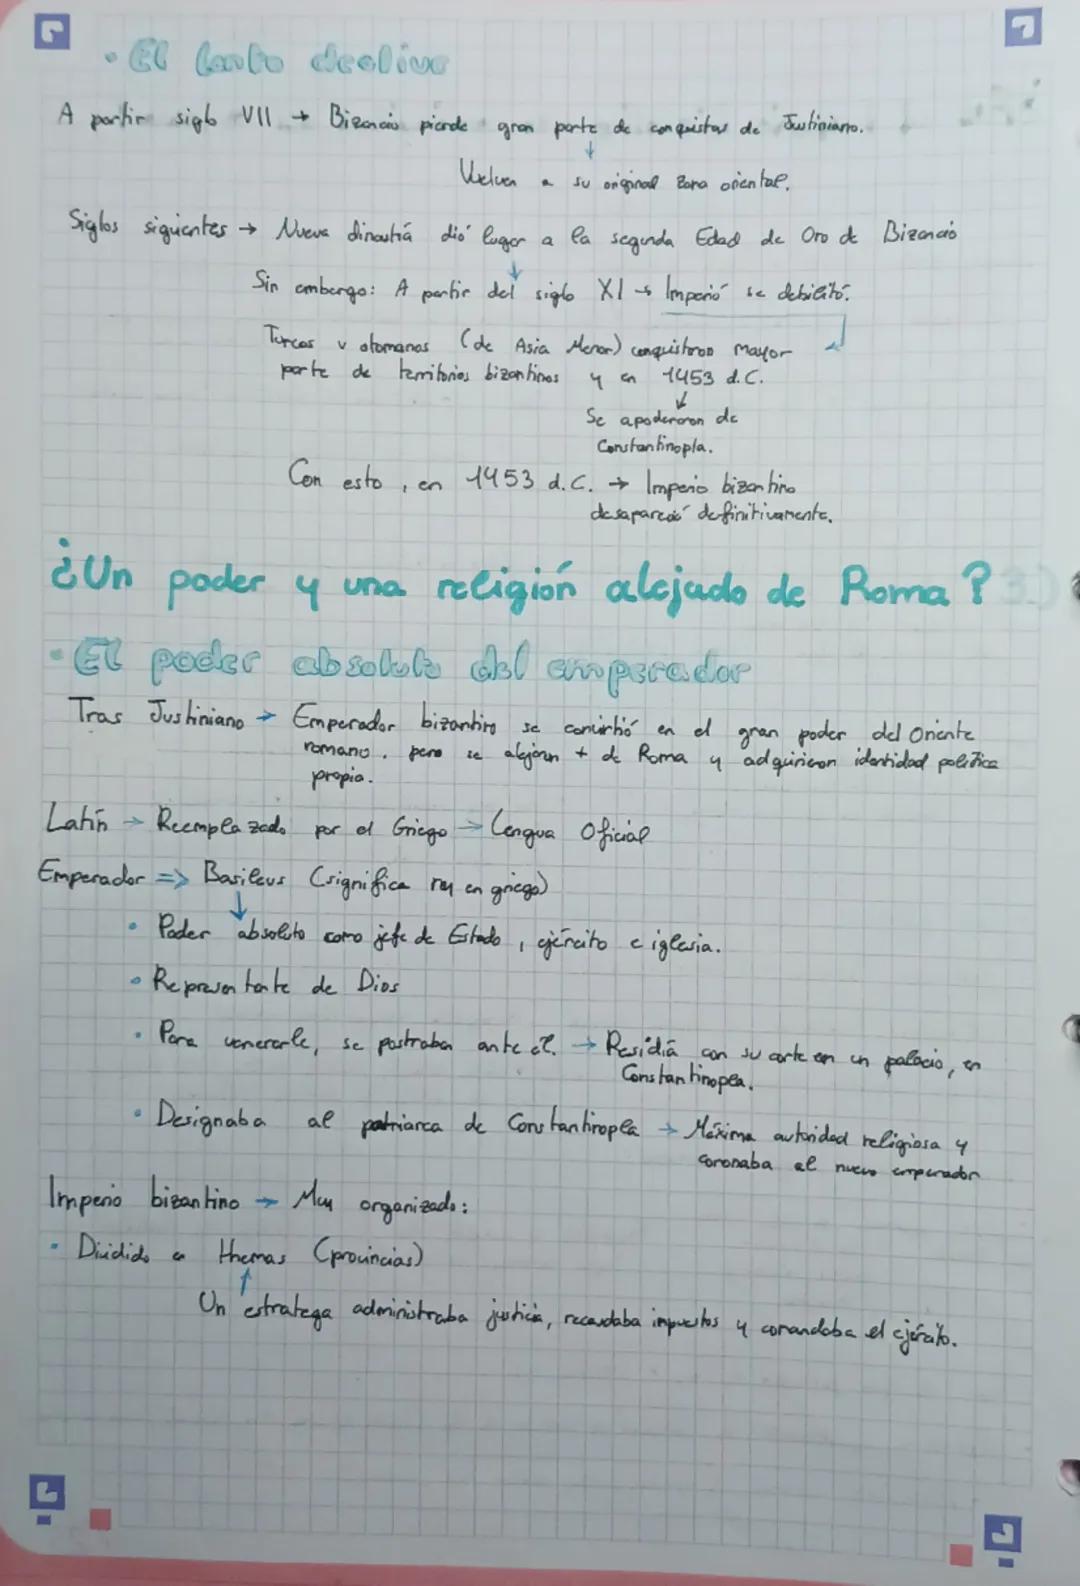 • El lento declive
A partir siglo VII → Bizancio pierde gran parte de conquistas de Justiniano.
↓
Vuelven a su original zona oriental.
Siglos siguientes → Nueva dinastía dió lugar a la segunda Edad de Oro de Bizancio
↓
Sin embargo: A partir del siglo XI → Imperio se debilitó.
Turcos y otomanos (de Asia Menor) conquistaron mayor
parte de territorios bizantinos y en 1453 d.C.
↓
Se apoderaron de
Constantinopla.
Con esto, en 1453 d.C. → Imperio bizantino
desapareció definitivamente.
¿Un poder y una religión alejado de Roma?
• El poder absoluto del emperador
Tras Justiniano → Emperador bizantino se convirtió en el gran poder del Oriente
romano, pero se alejaron + de Roma y adquirieron identidad política
propia.
Latín → Reemplazado por el Griego → Lengua Oficial
Emperador => Basileus (significa rey en griego)
↓
• Poder absoluto como jefe de Estado, ejército e iglesia.
• Representante de Dios
• Para venerarle, se postraban ante él. → Residía con su corte en un palacio, en
Constantinopla.
• Designaba al patriarca de Constantinopla → Máxima autoridad religiosa y
coronaba al nuevo emperador
Imperio bizantino → Muy organizado:
• Dividido en themas (provincias)
↑
Un estratega administraba justicia, recaudaba impuestos y comandaba el ejército.